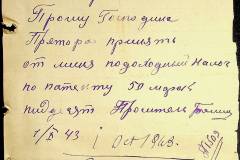 Прошу Господина
Претора принять
от меня подоходний налог
по патенту 50 марок
Проситель
1/X 43
1 Oct 1943.